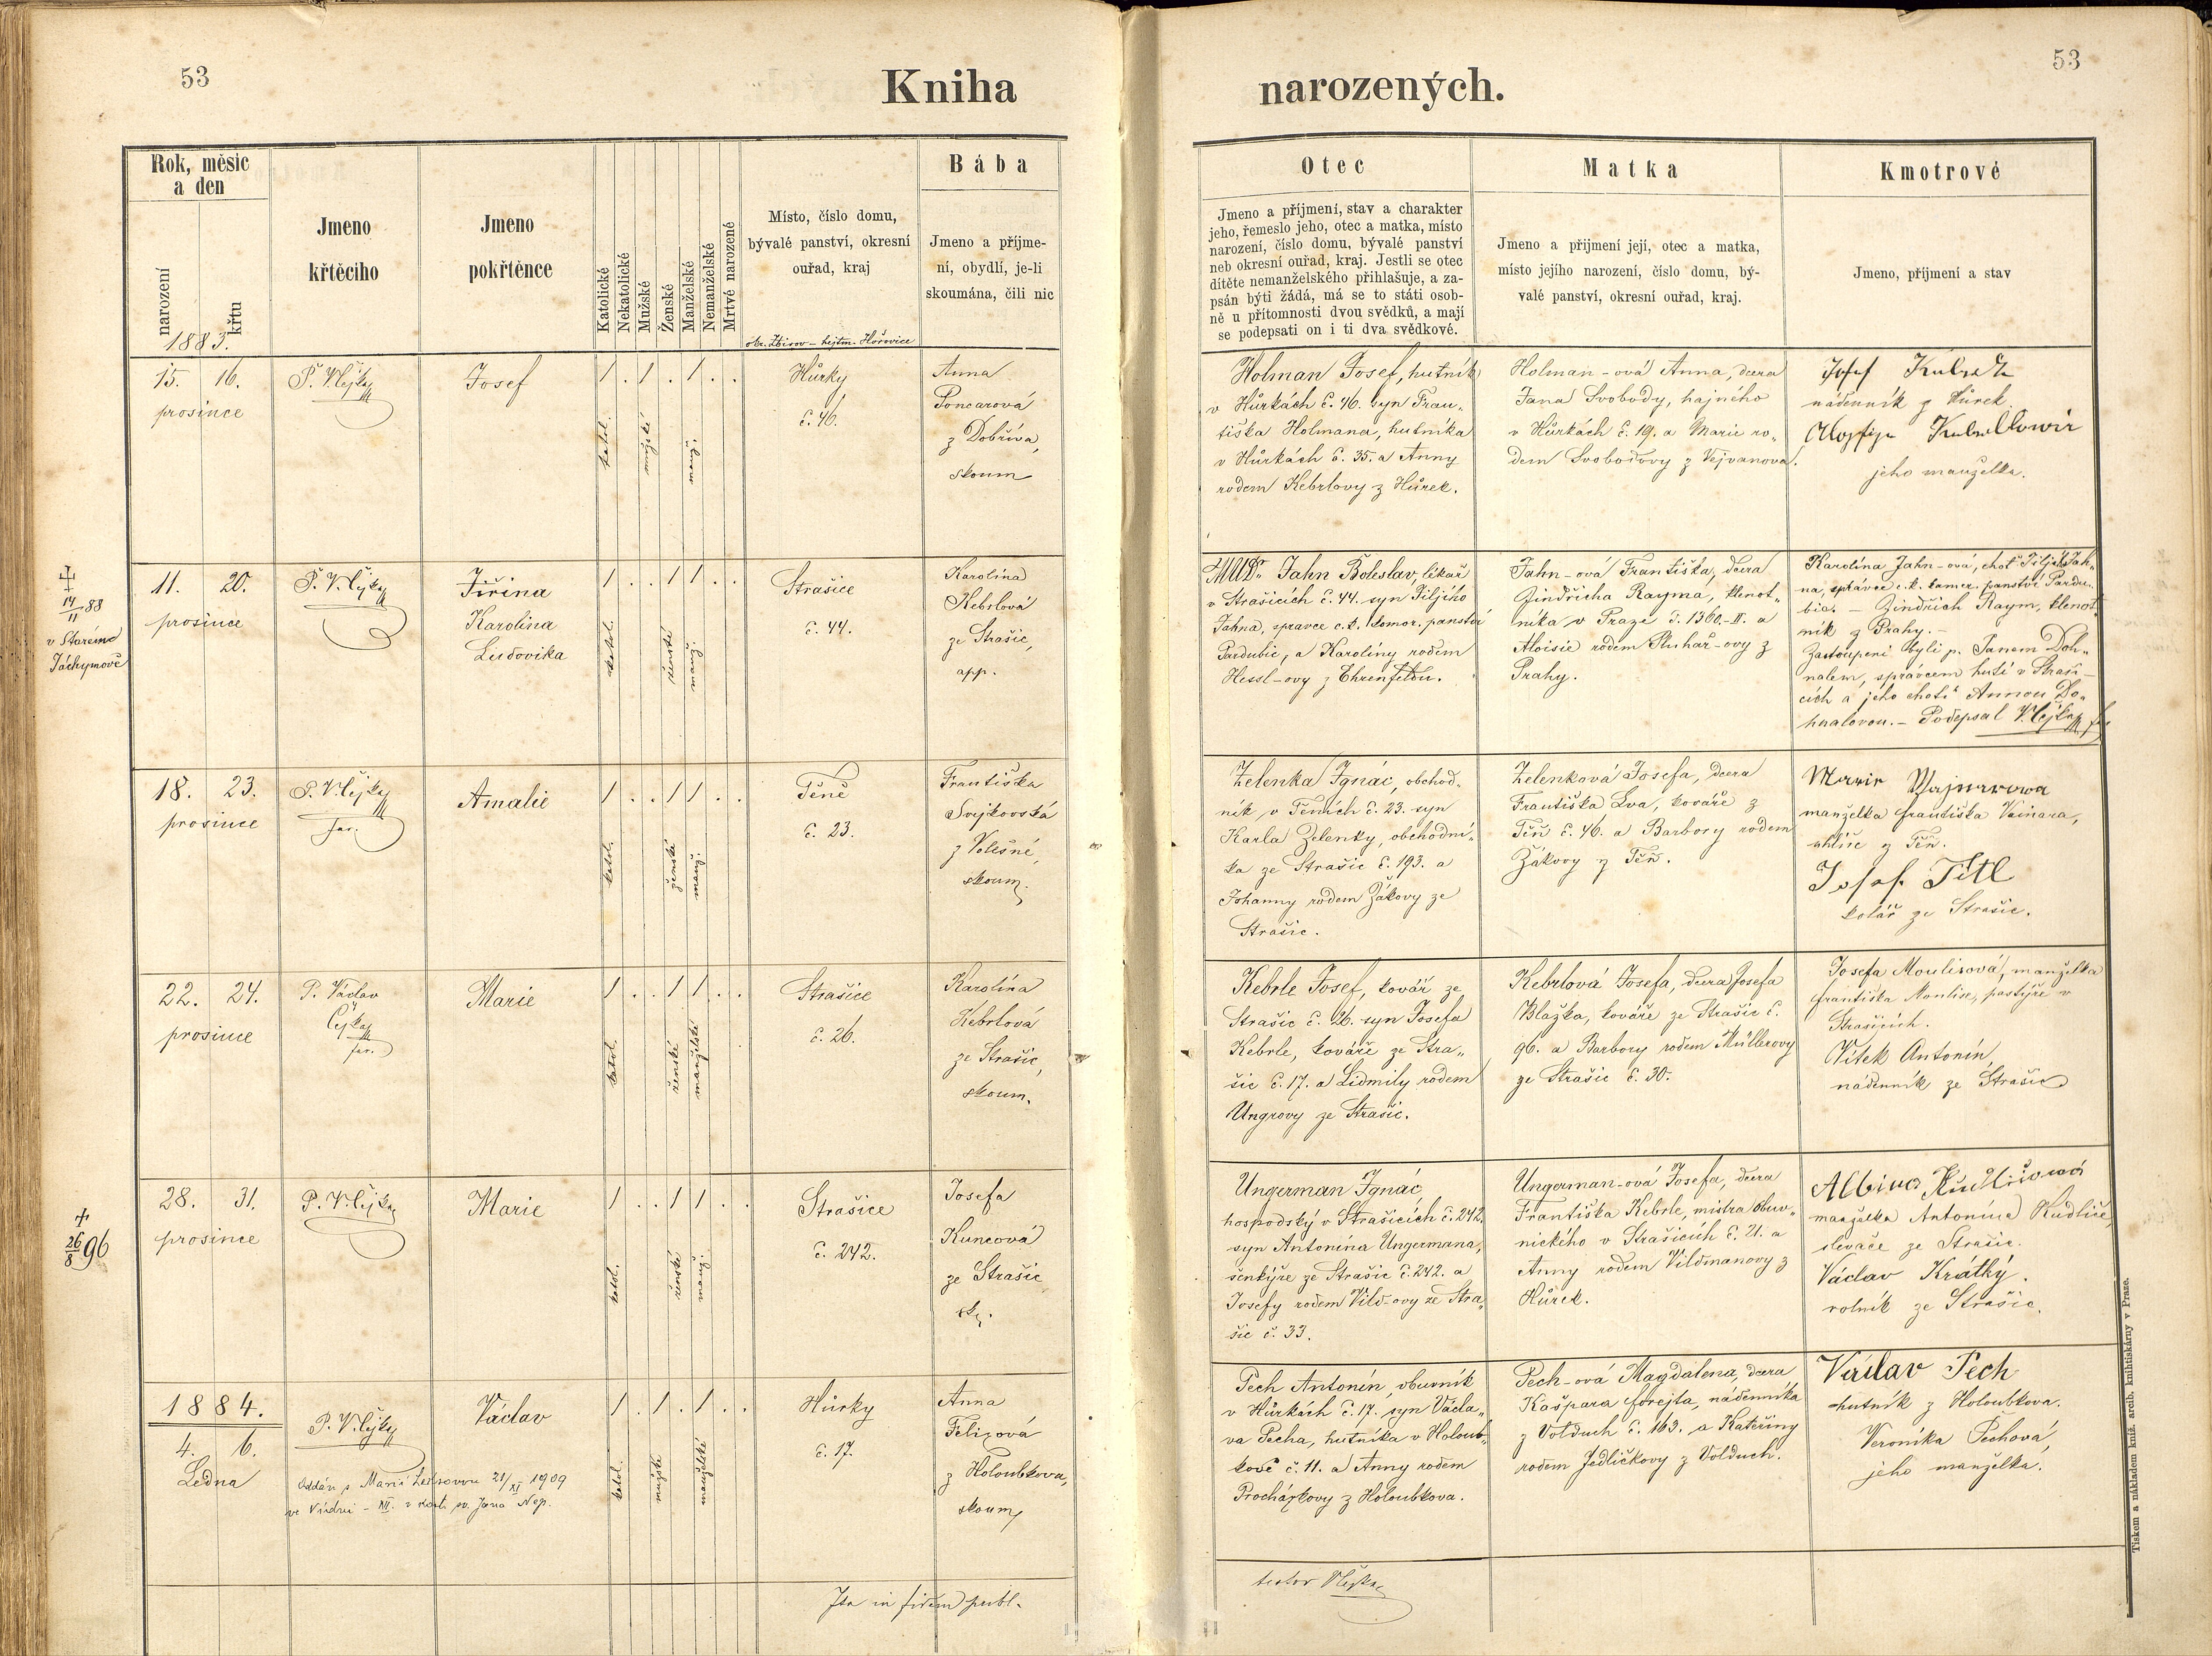 53
Kniha
Rok, měsíc
a den
narození
křtu
1883.
Jmeno
křtěcího
Jmeno
pokřtěnce
Katolické
Nekatolické
Mužské
Ženské
Manželské
Nemanželské
Mrtvé narozené
Místo, číslo domu,
bývalé panství, okresní
ouřad, kraj
okr. Zbirov – hejtm. Hořovice
Bába
Jmeno a příjme-
ní, obydlí, je-li
skoumána, čili nic
15. 16.
prosince
Josef
1 . 1 . 1 . .
katol.
mužské
manž.
Hůrky
č. 46.
Anna
Poncarová
z Dobříva,
skoum
14/11 88
v Starém
Jáchymově
11. 20.
prosince
Jiřina
Karolina
Ludovika
1 . . 1 1 . .
katol.
ženské
manž.
Strašice
č. 44.
Karolína
Kebrlová
ze Strašic,
app.
18. 23.
prosince
far.
Amalie
1 . . 1 1 . .
katol.
ženské
manž.
Těně
č. 23.
Františka
Svejkovská
z Volešné,
skoum.
22. 24.
prosince
P. Václav
far.
Marie
1 . . 1 1 . .
katol.
ženské
manželské
Strašice
č. 26.
Karolína
Kebrlová
ze Strašic,
skoum.
26/8 96
28. 31.
prosince
Marie
1 . . 1 1 . .
katol.
ženské
manž.
Strašice
č. 242.
Josefa
Kuncová
ze Strašic
sk.
1884.
4. 6.
Ledna
Václav
1 . 1 . 1 . .
katol.
mužské
manželské
Hůrky
č. 17.
Anna
Felixová
z Holoubkova,
skoum,
Oddán s Marií 21/XI 1909
ve Vídni – XII. v sv. Jana Nep.
Ita in fidem publ.
narozených.
53
Otec
Jmeno a příjmení, stav a charakter
jeho, řemeslo jeho, otec a matka, místo
narození, číslo domu, bývalé panství
neb okresní ouřad, kraj. Jestli se otec
dítěte nemanželského přihlašuje, a za-
psán býti žádá, má se to státi osob-
ně u přítomnosti dvou svědků, a mají
se podepsati on i ti dva svědkové.
Matka
Jmeno a přijmení její, otec a matka,
místo jejího narození, číslo domu, bý-
valé panství, okresní ouřad, kraj.
Kmotrové
Jmeno, příjmení a stav
Holman Josef, hutník
v Hůrkách č. 46. syn Fran„
tiška Holmana, hutníka
v Hůrkách č. 35. a Anny
rodem Kebrlovy z Hůrek.
Holman-ová Anna, dcera
Jana Svobody, hajného
v Hůrkách č. 19. a Marie ro„
dem Svobodovy z Vejvanova.
Josef
nádenník z Hůrek
jeho manželka.
MUDr Jahn Boleslav, lékař
v Strašicích č. 44. syn Jiljího
Jahna, správce c. k. komor. panství
Pardubic, a Karoliny rodem
Hessl-ovy z Ehrenfeldu.
Jahn-ová Františka, dcera
Jindřicha Rayma, klenot„
níka v Praze č. 1360.-II. a
Aloisie rodem Pluhař-ovy z
Prahy.
Karolína Jahn-ová, choť Jiljího Jah„
na, správce c. k. komor. panství Pardu„
bic. – Jindřich Raym, klenot„
ník z Prahy. –
Zastoupeni byli p. Janem Doh„
nalem, správcem hutí v Straši–
cích a jeho chotí Annou Do„
hnalovou. – Podepsal
Zelenka Ignác, obchod„
ník, v Těních č. 23. syn
Karla Zelenky, obchodní„
ka ze Strašic č. 193. a
Johanny rodem Žákovy ze
Strašic.
Zelenková Josefa, dcera
Františka Lva, kováře z
Těň č. 46. a Barbory rodem
Žákovy z Těň.
manželka Františka Vainara,
uhlíře z Těň.
Josef Títl
kolář ze Strašic.
Kebrle Josef, kovář ze
Strašic č. 26. syn Josefa
Kebrle, kováře ze Stra„
šic č. 17. a Lidmily rodem
Ungrovy ze Strašic.
Kebrlová Josefa, dcera Josefa
Blažka, kováře ze Strašic č.
96. a Barbory rodem Müllerovy
ze Strašic č. 30.
Josefa Moulisová, manželka
Františka Moulise, pastýře v
Strašicích.
Vítek Antonín,
nádenník ze Strašic
Ungerman Ignác,
hospodský v Strašicích č. 242.
syn Antonína Ungermana,
šenkýře ze Strašic č. 242. a
Josefy rodem Vild-ovy ze Stra„
šic č. 33.
Ungerman-ová Josefa, dcera
Františka Kebrle, mistra obuv„
nického v Strašicích č. 21. a
Anny rodem Vildmanovy z
Hůrek.
Albina Kudličová
manželka Antonína Kudliče,
slévače ze Strašic.
Václav Krátký.
rolník ze Strašic.
Pech Antonín, obuvník
v Hůrkách č. 17. syn Václa„
va Pecha, hutníka v Holoub„
kově č. 11. a Anny rodem
Procházkovy z Holoubkova.
Pech-ová Magdalena, dcera
Kašpara Forejta, nádenníka
z Volduch č. 163. a Kateřiny
rodem Jedličkovy z Volduch.
Václav Pech
hutník z Holoubkova.
Veronika Pechová,
jeho manželka.
Tiskem a nákladem kníž. arcib. knihtiskárny v Praze.